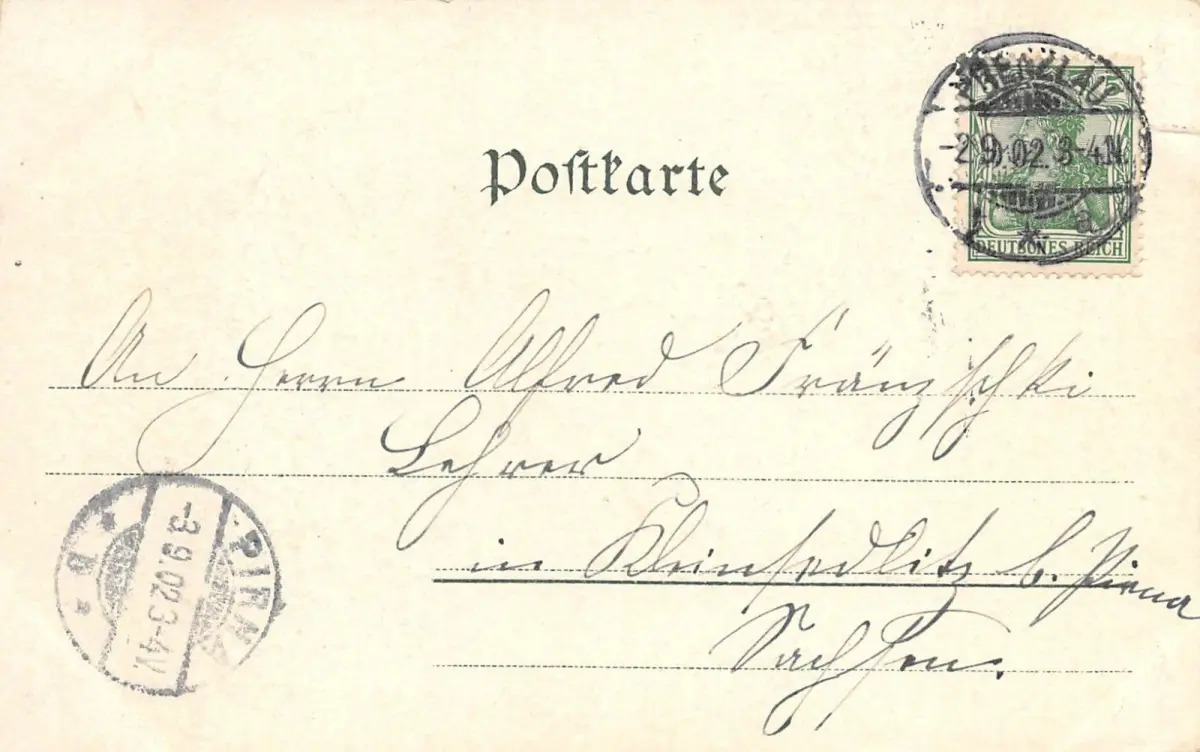 Postkarte
PRENZLAU
-2.9.02.3-4N.
* a
5
DEUTSCHES REICH
An Herrn Alfred Fränzschki
Lehrer
in Kleinsedlitz b. Pirna
Sachsen.
PIRNA
-3.9.02.3-4V.
* a